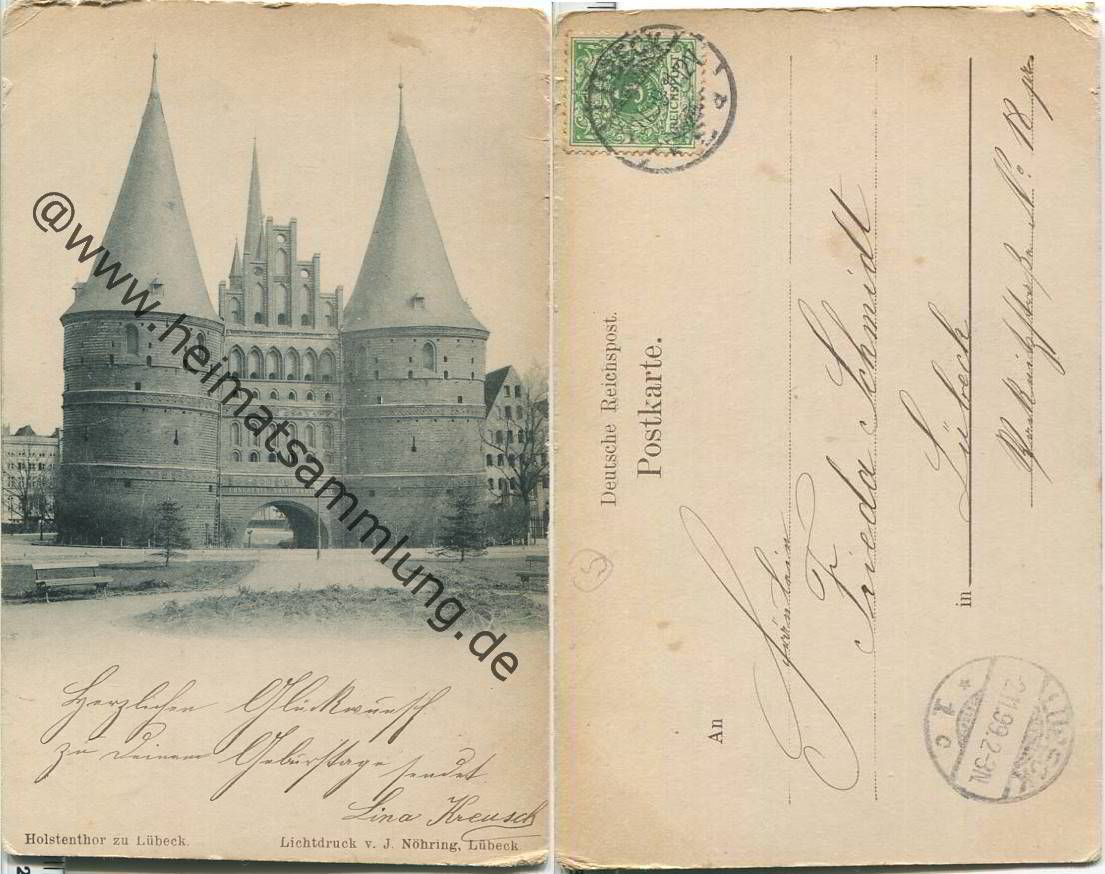 @www.heimatsammlung.de
Herzlichen Glückwunsch
zu Deinem Geburtstage sendet
Lina Kreusch
Holstenthor zu Lübeck.
Lichtdruck v. J. Nöhring, Lübeck
Deutsche Reichspost.
Postkarte.
An
Fräulein
Frieda Schmidt
in Lübeck
No 18
LÜBECK
REICHSPOST
5
2.11.99.2-3N
* 1 c